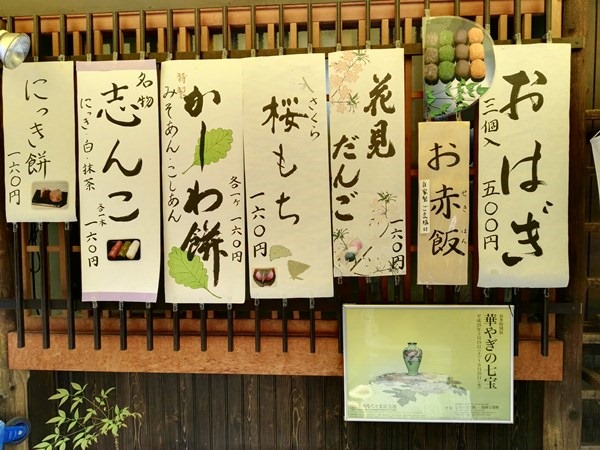 おはぎ
三個入
五〇〇円
お赤飯
せきはん
自家製ごま塩付
花見だんご
一六〇円
さくら
桜もち
一六〇円
特製
かしわ餅
みそあん・こしあん
各一ヶ 一六〇円
名物
志んこ
にっき・白・抹茶
各一本 一六〇円
にっき餅
一六〇円
華やぎの七宝